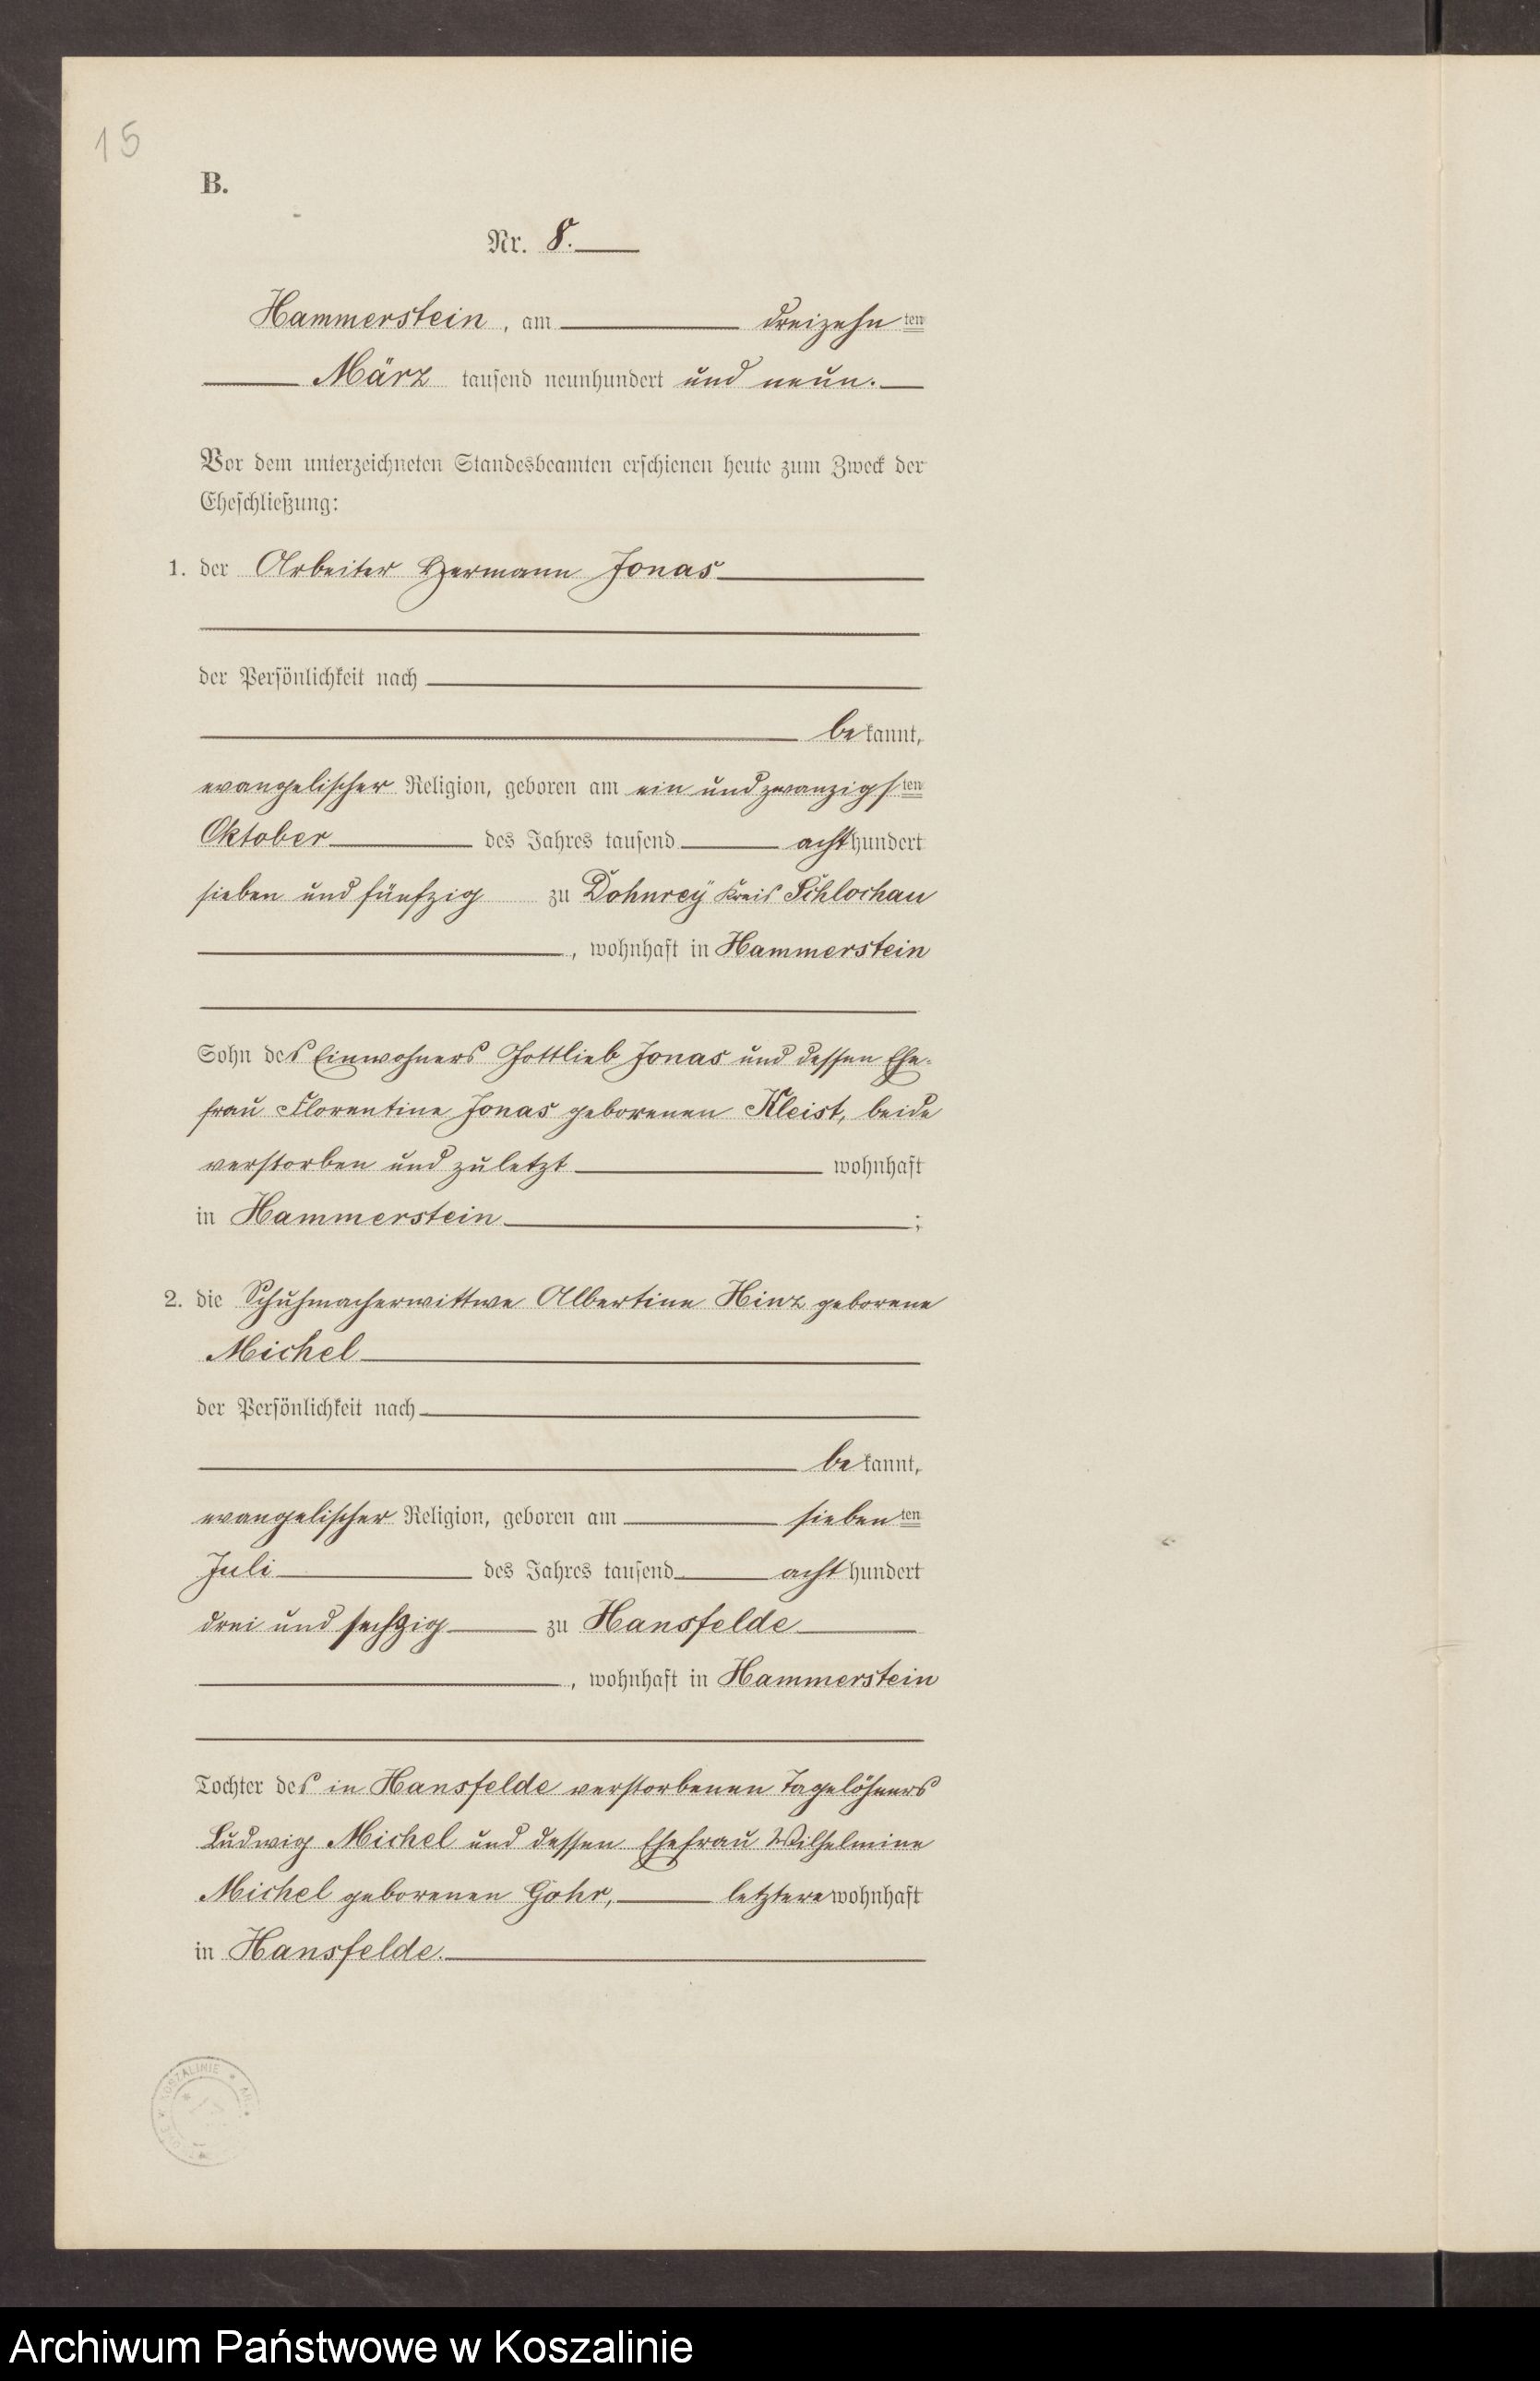 15
B.
Nr. 8.
Hammerstein, am dreizehnten
März tausend neunhundert und neun.
Vor dem unterzeichneten Standesbeamten erschienen heute zum Zweck der
Eheschließung:
1. der Arbeiter Hermann Jonas
der Persönlichkeit nach
bekannt,
evangelischer Religion, geboren am ein und zwanzigsten
Oktober des Jahres tausend achthundert
sieben und fünfzig zu Dohnreÿ Kreis Schlochau
, wohnhaft in Hammerstein
Sohn des Einwohners Gottlieb Jonas und dessen Ehe-
frau Florentine Jonas geborenen Kleist, beide
verstorben und zuletzt wohnhaft
in Hammerstein ;
2. die Schuhmacherwittwe Albertine Hinz geborene
Michel
der Persönlichkeit nach
bekannt,
evangelischer Religion, geboren am siebenten
Juli des Jahres tausend achthundert
drei und sechzig zu Hansfelde
, wohnhaft in Hammerstein
Tochter des in Hansfelde verstorbenen Tagelöhners
Ludwig Michel und dessen Ehefrau Wilhelmine
Michel geborenen Gohr, letztere wohnhaft
in Hansfelde.
KOSZALINIE
Archiwum Państwowe w Koszalinie